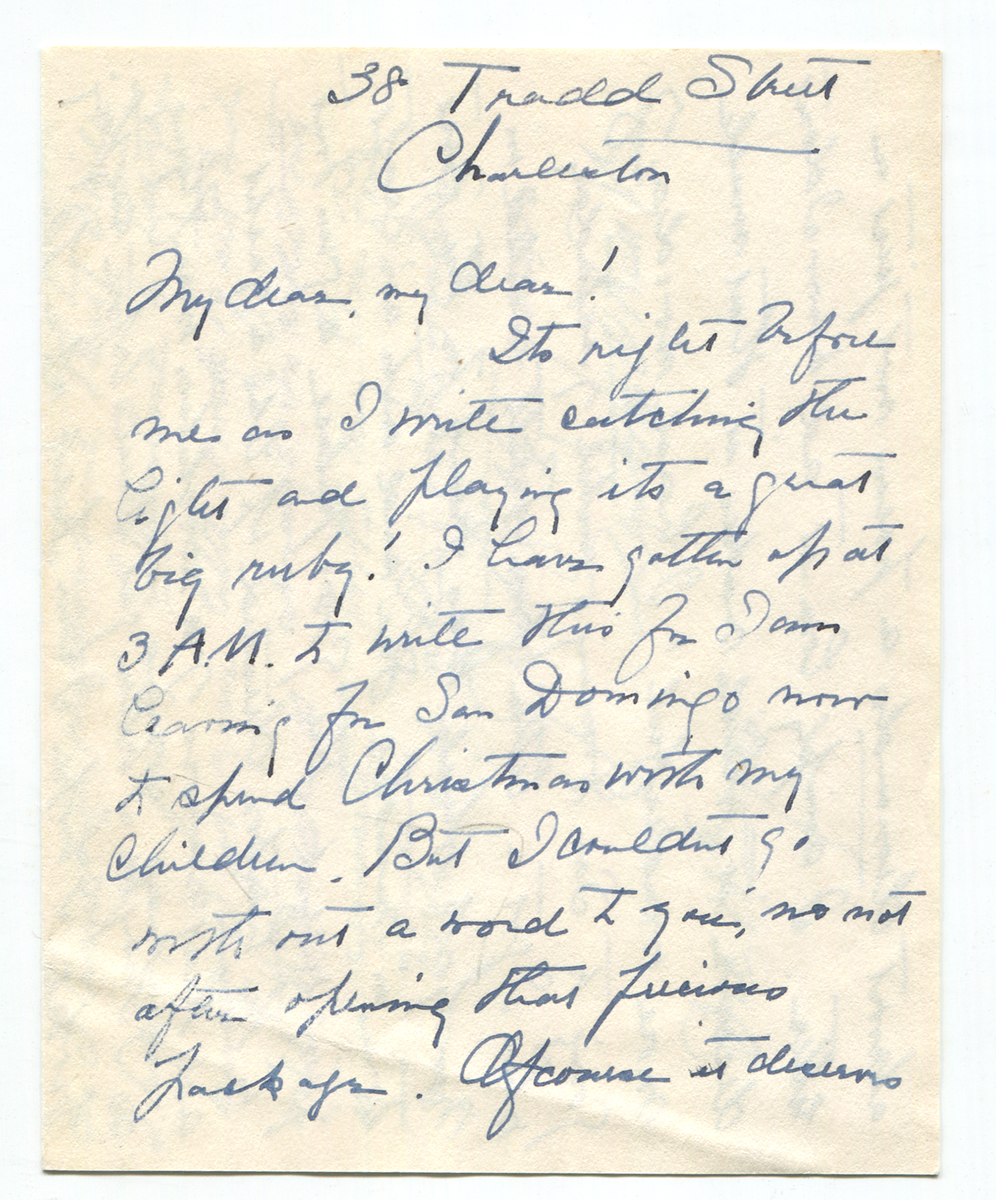 38 Tradd Street
Charleston
My dear, my dear!
Its right before
me as I write catching the
light and playing its a great
big ruby! I have gotten up at
3 A.M. to write this for I am
leaving for San Domingo now
to spend Christmas with my
children. But I couldnt go
with out a word to you, no not
after opening that precious
package. Of course it deserves